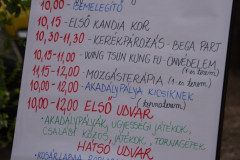 10,00 - BEMELEGÍTŐ
10,15 - ELSŐ KANDIA KÖR
10,30-11,30 - KERÉKPÁROZÁS - BEGA PART
10,15-11,00 - WING TSUN KUNG FU - ÖNVÉDELEM
11,15-12,00 - MOZGÁSTERÁPIA
10,00-11,00 - AKADÁLYPÁLYA KICSIKNEK
10,00-12,00 ELSŐ UDVAR
- AKADÁLYPÁLYÁK, ÜGYESSÉGI JÁTÉKOK,
CSALÁDI KÖZÖS JÁTÉKOK, TORNAGÉPEK
HÁTSÓ UDVAR
- KOSÁRLABDA